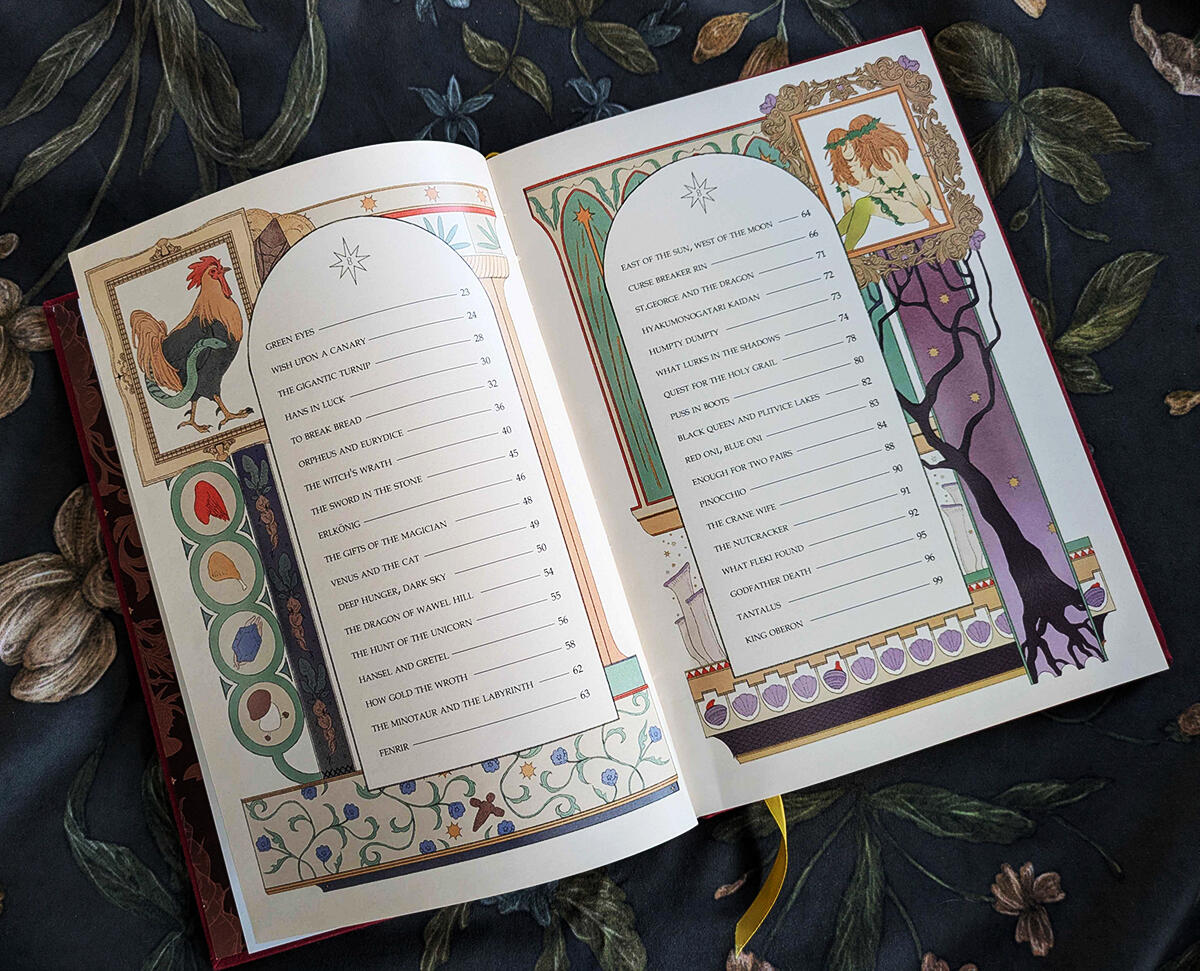 GREEN EYES 23
WISH UPON A CANARY 24
THE GIGANTIC TURNIP 28
HANS IN LUCK 30
TO BREAK BREAD 32
ORPHEUS AND EURYDICE 36
THE WITCH'S WRATH 40
THE SWORD IN THE STONE 45
ERLKÖNIG 46
THE GIFTS OF THE MAGICIAN 48
VENUS AND THE CAT 49
DEEP HUNGER, DARK SKY 50
THE DRAGON OF WAWEL HILL 54
THE HUNT OF THE UNICORN 55
HANSEL AND GRETEL 56
HOW GOLD THE WROTH 58
THE MINOTAUR AND THE LABYRINTH 62
FENRIR 63
EAST OF THE SUN, WEST OF THE MOON 64
CURSE BREAKER RIN 66
ST.GEORGE AND THE DRAGON 71
HYAKUMONOGATARI KAIDAN 72
HUMPTY DUMPTY 73
WHAT LURKS IN THE SHADOWS 74
QUEST FOR THE HOLY GRAIL 78
PUSS IN BOOTS 80
BLACK QUEEN AND PLITVICE LAKES 82
RED ONI, BLUE ONI 83
ENOUGH FOR TWO PAIRS 84
PINOCCHIO 88
THE CRANE WIFE 90
THE NUTCRACKER 91
WHAT FLEKI FOUND 92
GODFATHER DEATH 95
TANTALUS 96
KING OBERON 99